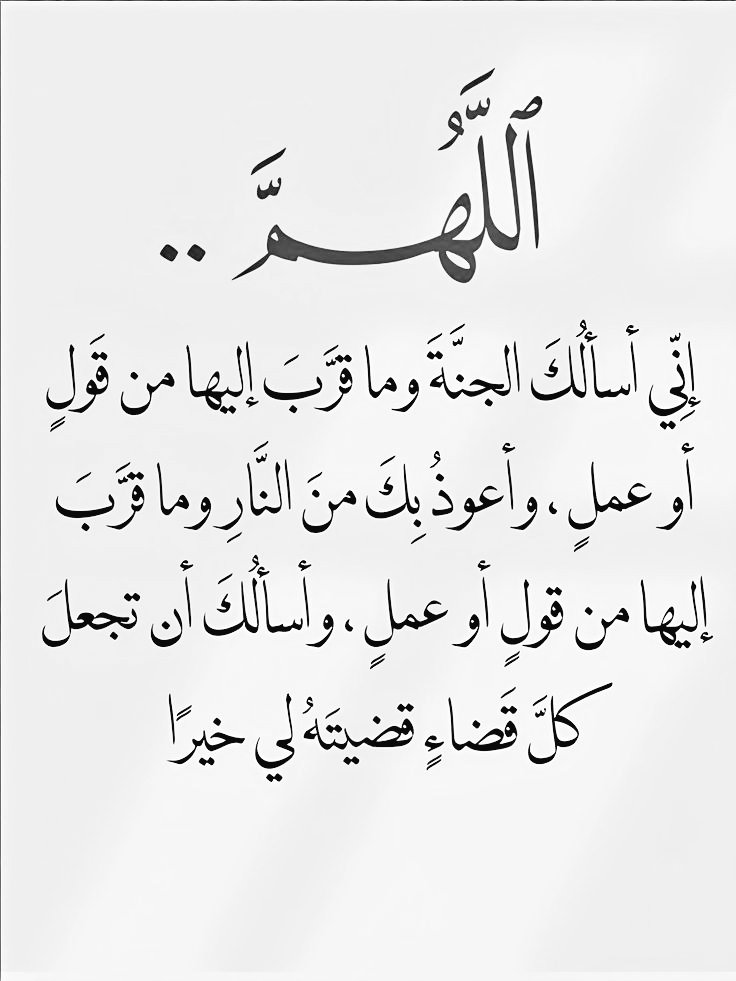 ٱللَّهُمَّ ..
إِنِّي أسألُكَ الجنَّةَ وما قرَّبَ إليها من قَولٍ
أو عملٍ ، وأعوذُ بِكَ منَ النَّارِ وما قرَّبَ
إليها من قولٍ أو عملٍ ، وأسألُكَ أن تجعلَ
كلَّ قَضاءٍ قضيتَهُ لي خيرًا